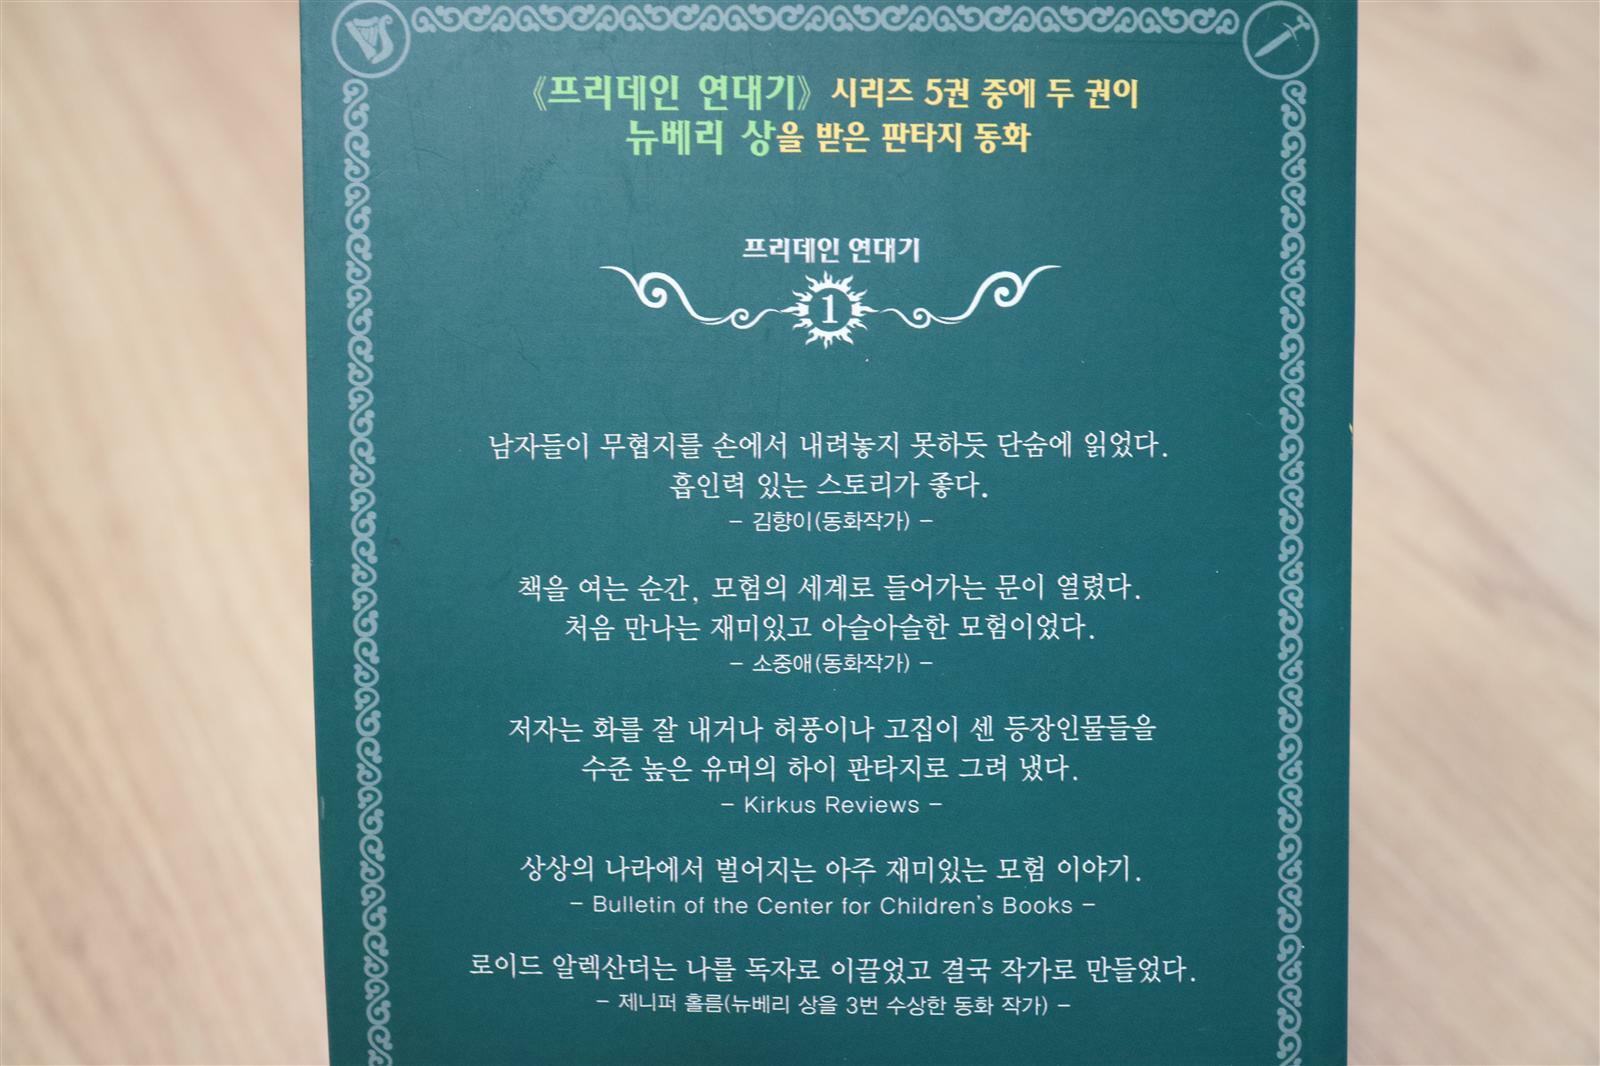 《프리데인 연대기》 시리즈 5권 중에 두 권이
뉴베리 상을 받은 판타지 동화
프리데인 연대기
1
남자들이 무협지를 손에서 내려놓지 못하듯 단숨에 읽었다.
흡인력 있는 스토리가 좋다.
– 김향이(동화작가) –
책을 여는 순간, 모험의 세계로 들어가는 문이 열렸다.
처음 만나는 재미있고 아슬아슬한 모험이었다.
– 소중애(동화작가) –
저자는 화를 잘 내거나 허풍이나 고집이 센 등장인물들을
수준 높은 유머의 하이 판타지로 그려 냈다.
– Kirkus Reviews –
상상의 나라에서 벌어지는 아주 재미있는 모험 이야기.
– Bulletin of the Center for Children's Books –
로이드 알렉산더는 나를 독자로 이끌었고 결국 작가로 만들었다.
– 제니퍼 홀름(뉴베리 상을 3번 수상한 동화 작가) –